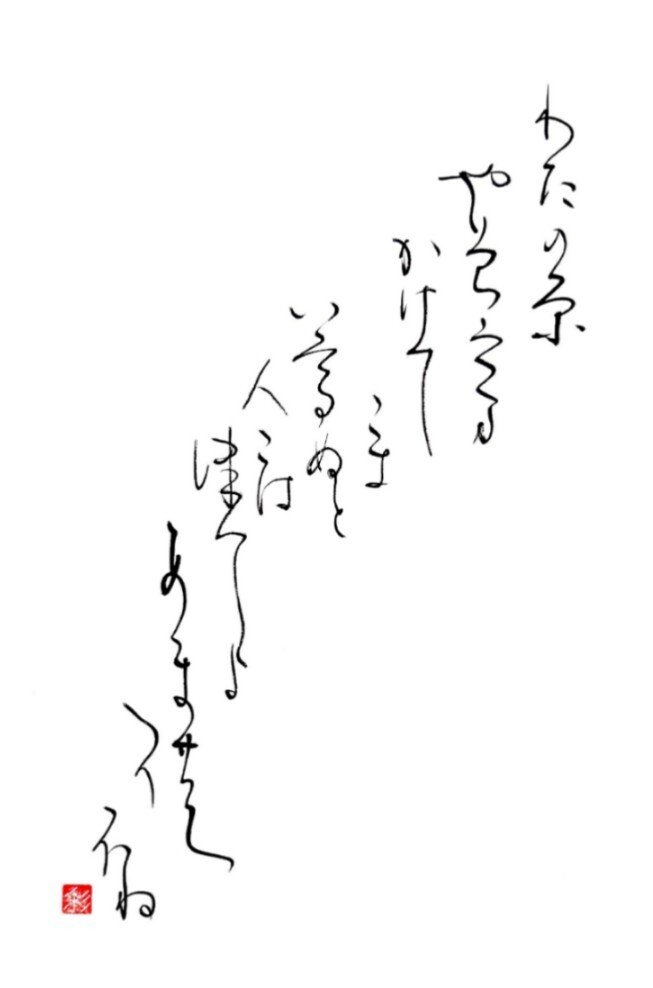 わたの原
やそしま
かけて
こき
いてぬと
人には
津けよ
あまの
つり
ふね